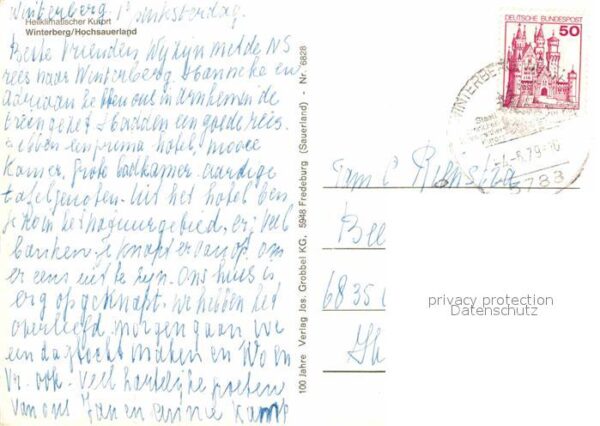 Winterberg 1e pinksterdag.
Heilklimatischer Kurort
Winterberg/Hochsauerland
Beste Vrienden Wij zijn met de NS
reis naar Winterberg. Hanneke en
Adriaan hebben ons in Arnhem in de
trein gezet. Hadden een goede reis.
Hebben een prima hotel, mooie
Kamer, grote badkamer. aardige
tafelgenoten. Uit het hotel ben
je zo in het natuurgebied, er veel
banken. Je knapt er van op, om
er eens uit te zijn. Ons huis is
erg opgeknapt. We hebben het
overleefd. morgen gaan we
een dagtocht maken en Wo en
Vr. ook. Veel hartelijke groeten
van ons Jan en Annie Kamp
100 Jahre Verlag Jos. Grobbel KG, 5948 Fredeburg (Sauerland) - Nr. 6828
DEUTSCHE BUNDESPOST
50
WINTERBERG
-4.-6.79-16
5788
Fam C Riensra
Bee
6835
privacy protection
Datenschutz